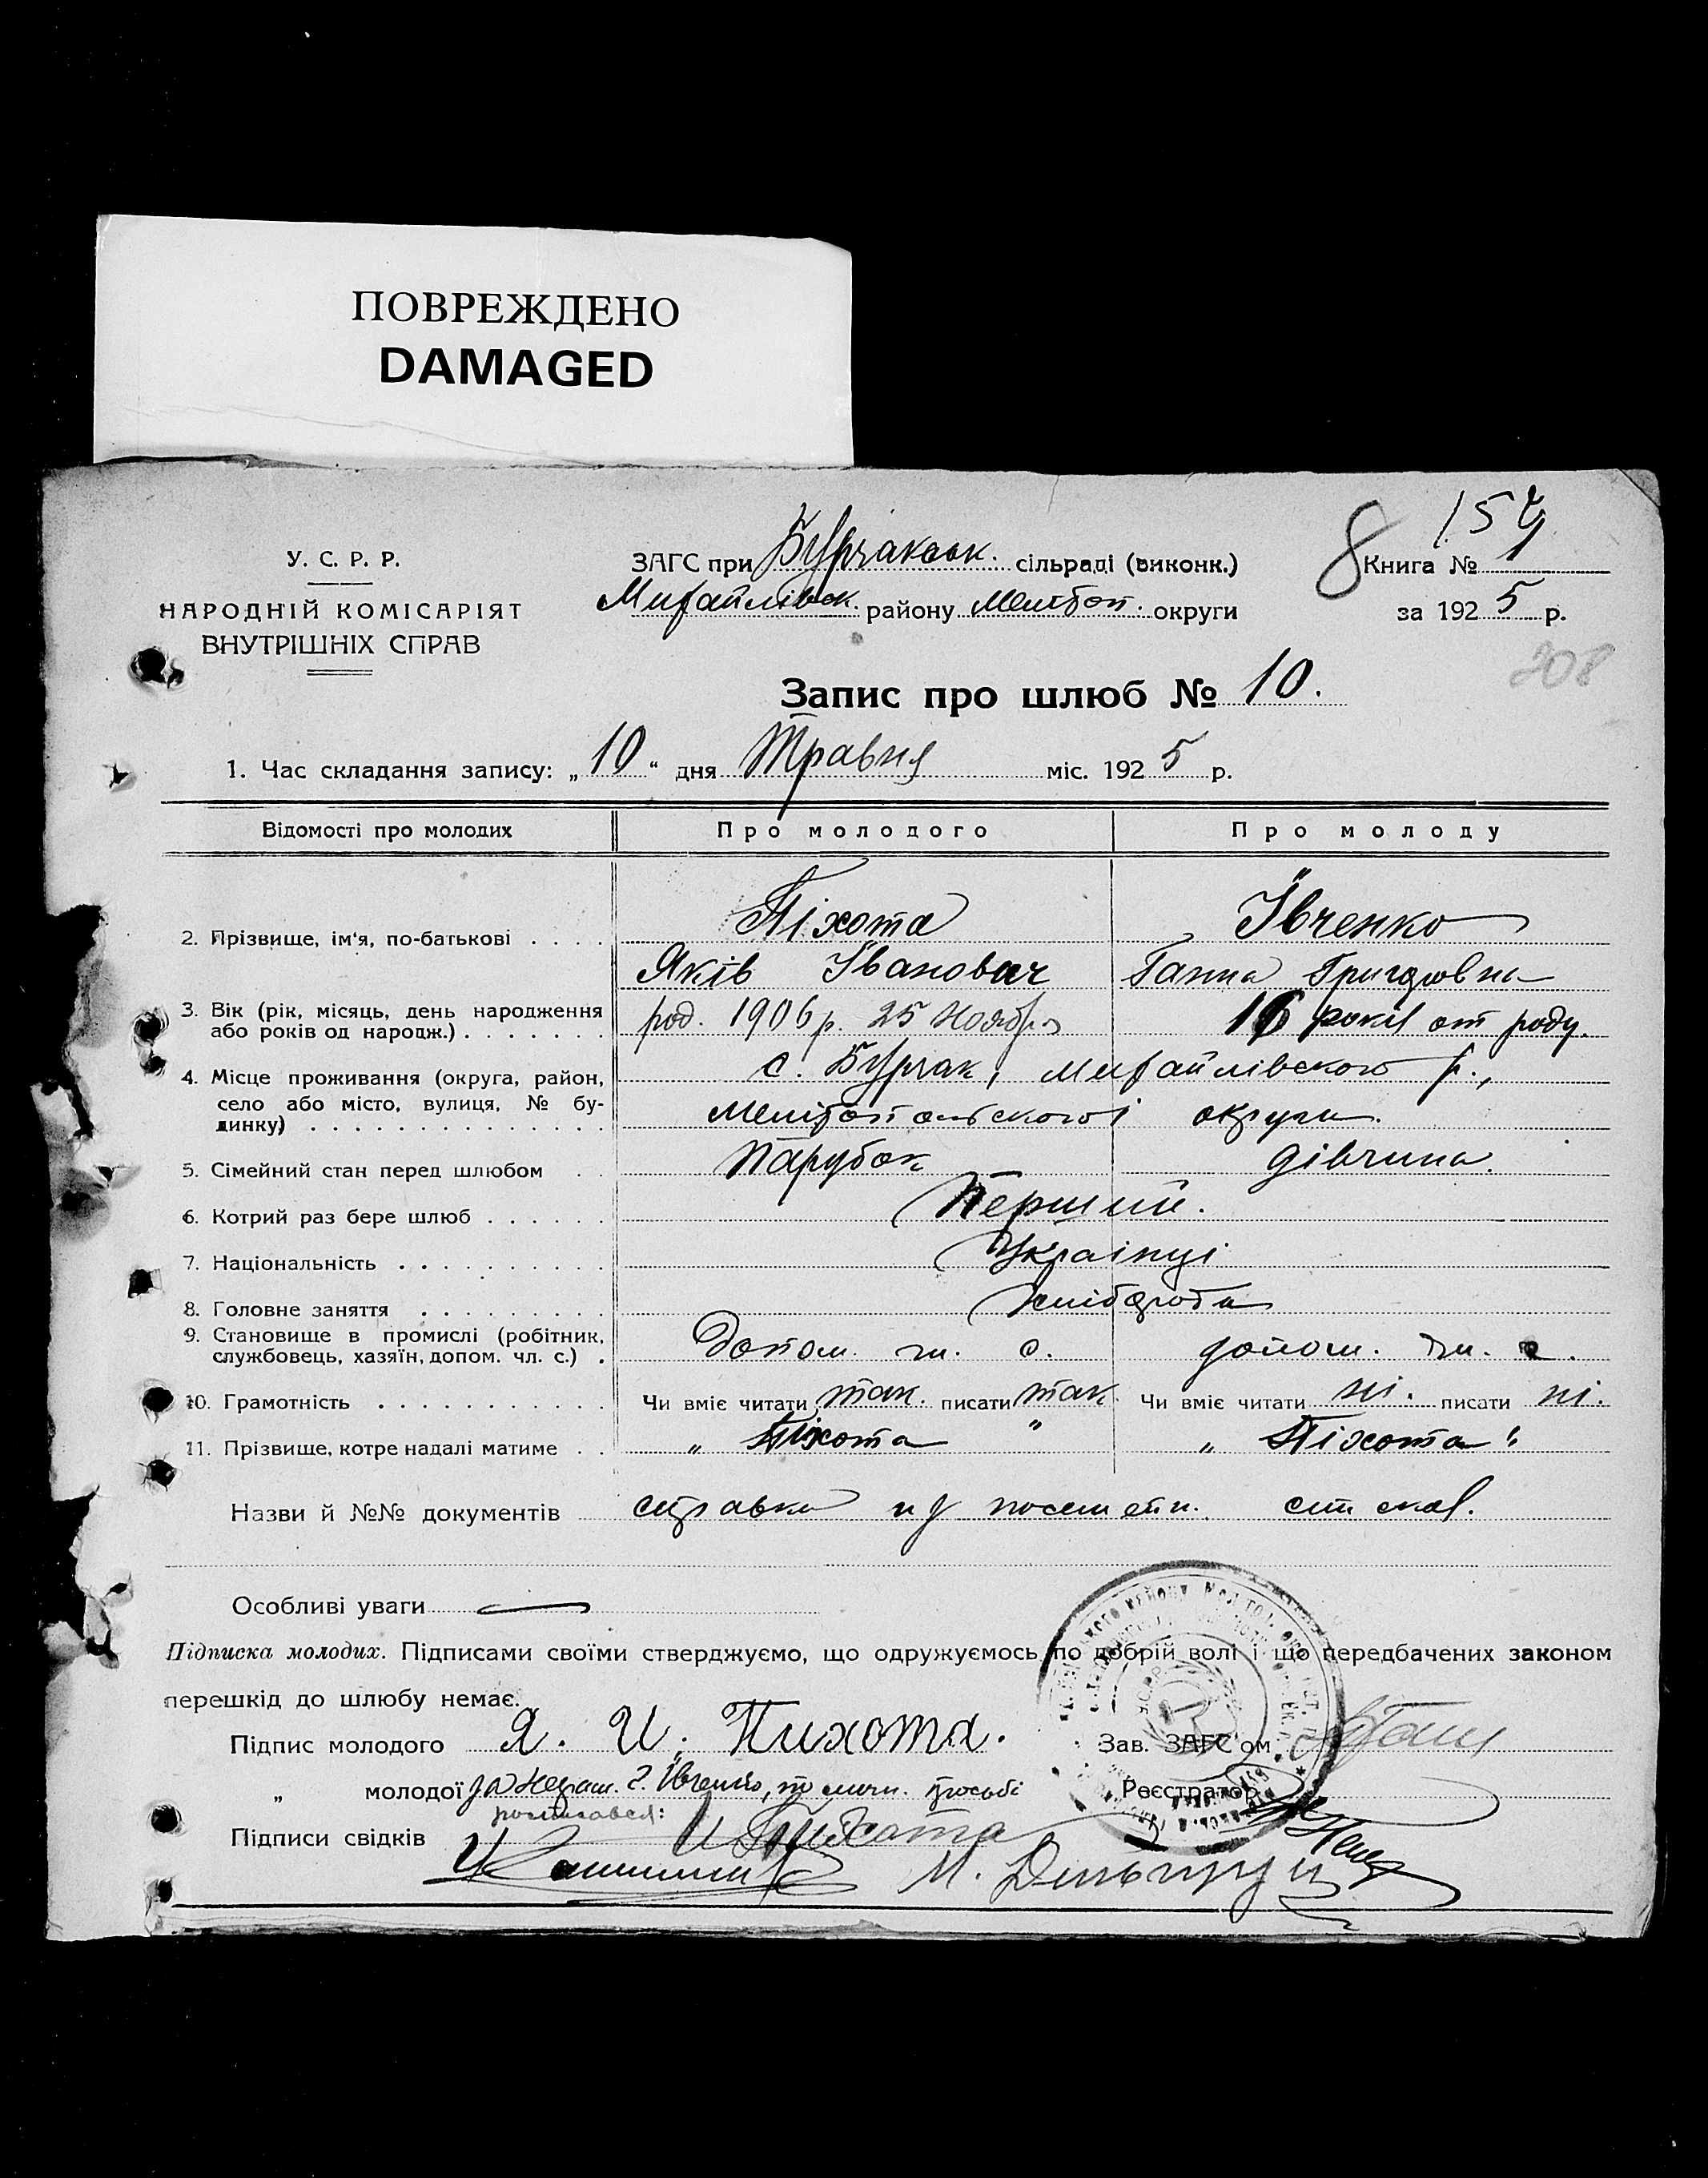 ПОВРЕЖДЕНО
DAMAGED
8 154
У. С. Р. Р.
НАРОДНІЙ КОМІСАРІЯТ
ВНУТРІШНІХ СПРАВ
ЗАГС при Бурчакськ. сільраді (виконк.)
Михайлівськ. району Мелітоп. округи
Книга № 1
за 1925 р.
208
Запис про шлюб № 10.
1. Час складання запису: „10“ дня Травня міс. 1925 р.
Відомості про молодих Про молодого Про молоду
2. Прізвище, ім'я, по-батькові Піхота Івченко
Яків Іванович Ганна Григоровна
3. Вік (рік, місяць, день народження або років од народж.) род. 1906 р. 25 Ноября 16 років от роду.
4. Місце проживання (округа, район, село або місто, вулиця, № будинку) с. Бурчак, Михайлівского р.,
Мелітопольскої округи.
5. Сімейний стан перед шлюбом Парубок дівчина.
6. Котрий раз бере шлюб Перший.
7. Національність Украінці
8. Головне заняття Хлібороби
9. Становище в промислі (робітник, службовець, хазяїн, допом. чл. с.) Допом. чл. с. допом. чл. с.
10. Грамотність Чи вміє читати так. писати так. Чи вміє читати ні. писати ні.
11. Прізвище, котре надалі матиме „Піхота“ „Піхота“
Назви й №№ документів справка
Особливі уваги —
Підписка молодих. Підписами своїми стверджуємо, що одружуємось по добрій волі і що передбачених законом
перешкід до шлюбу немає.
Підпис молодого Я. И. Пихота. Зав. ЗАГС'ом
„ молодої за неграм. Г. Івченко, по личн. просьбі Реєстратор
росписався:
Підписи свідків И Пихота